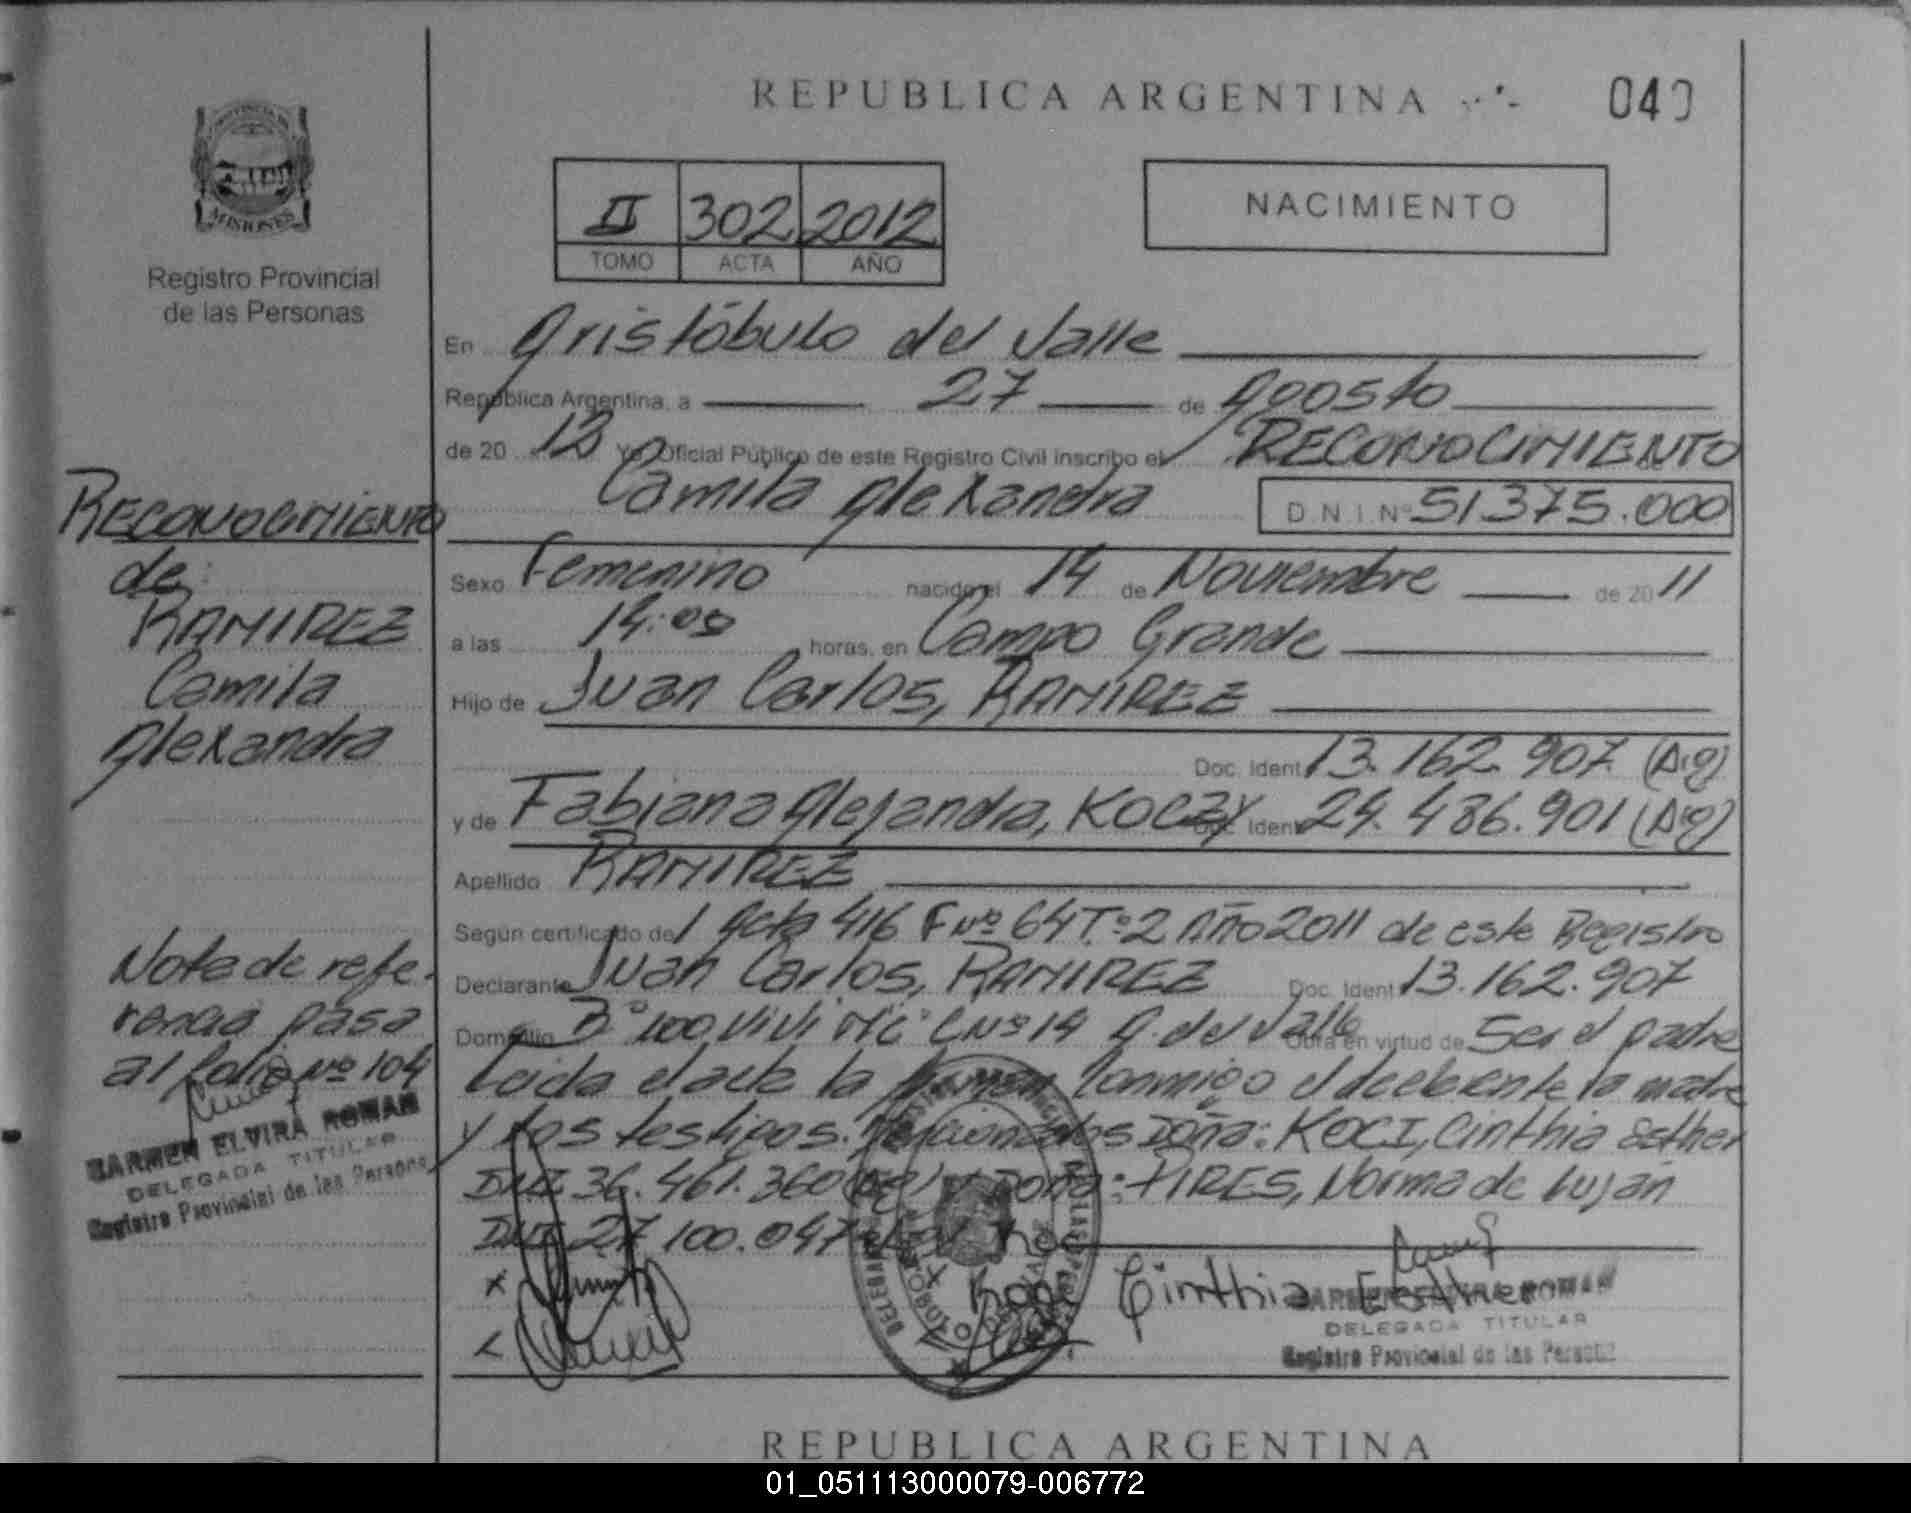 REPUBLICA ARGENTINA
040
MISIONES
Registro Provincial
de las Personas
II 302 2012
TOMO ACTA AÑO
NACIMIENTO
En Aristóbulo del Valle
República Argentina, a 27 de Agosto
de 20 12 Yo Oficial Público de este Registro Civil inscribo el RECONOCIMIENTO
Camila Alexandra D.N.I. Nº 51.375.000
Sexo Femenino nacido el 14 de Noviembre de 2011
a las 14:00 horas, en Campo Grande
Hijo de Juan Carlos, RAMIREZ
Doc. Ident. 13.162.907 (Arg)
y de Fabiana Alejandra, KOCZY Doc. Ident. 24.486.901 (Arg)
Apellido RAMIREZ
Según certificado de l Acta 416 F nº 64 Tº 2 Año 2011 de este Registro
Declarante Juan Carlos, RAMIREZ Doc. Ident. 13.162.907
Domicilio Bº 100 Vivi C Nº 14 A. del Valle Obra en virtud de Ser el padre
Leida el acta la firman Conmigo el declarante la madre
y los testigos mencionados Doña: KOCI, Cinthia Esther
DNI 36.461.360 y Doña: PIRES, Norma de Luján
DNI 27.100.047
Cinthia Esther
CARMEN ELVIRA ROMAN
DELEGADA TITULAR
Registro Provincial de las Personas
RECONOCIMIENTO
de:
RAMIREZ
Camila
Alexandra
Nota de refe-
rencia pasa
al folio nº 104
CARMEN ELVIRA ROMAN
DELEGADA TITULAR
Registro Provincial de las Personas
REPUBLICA ARGENTINA
01_051113000079-006772